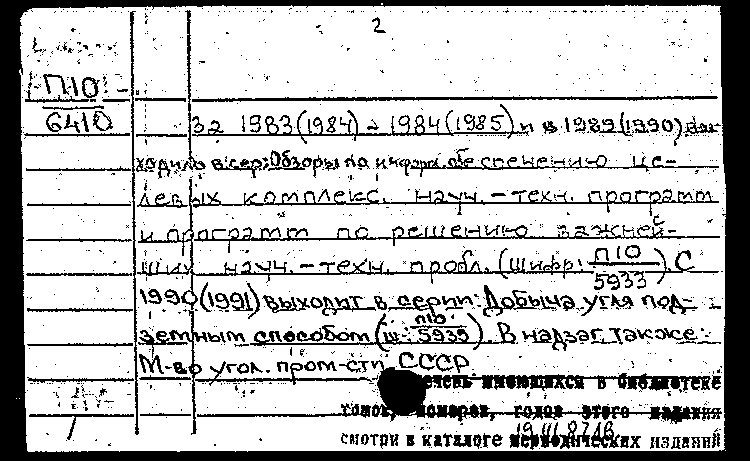 2
П10
6410
За 1983(1984) - 1984(1985) и в 1989(1990) вы-
ходило в сер: Обзоры по информ. обеспечению це-
левых комплекс. науч.-техн. программ
и программ по решению важней-
ших науч.-техн. пробл. (Шифр: П10/5933). С
1990(1991) выходит в серии: Добыча угля под-
земным способом (ш: П10/5935). В надзаг. также:
М-во угол. пром-сти СССР
имеющихся в библиотеке
томов, номеров, годов этого издания
смотри в каталоге периодических изданий
19.III.87